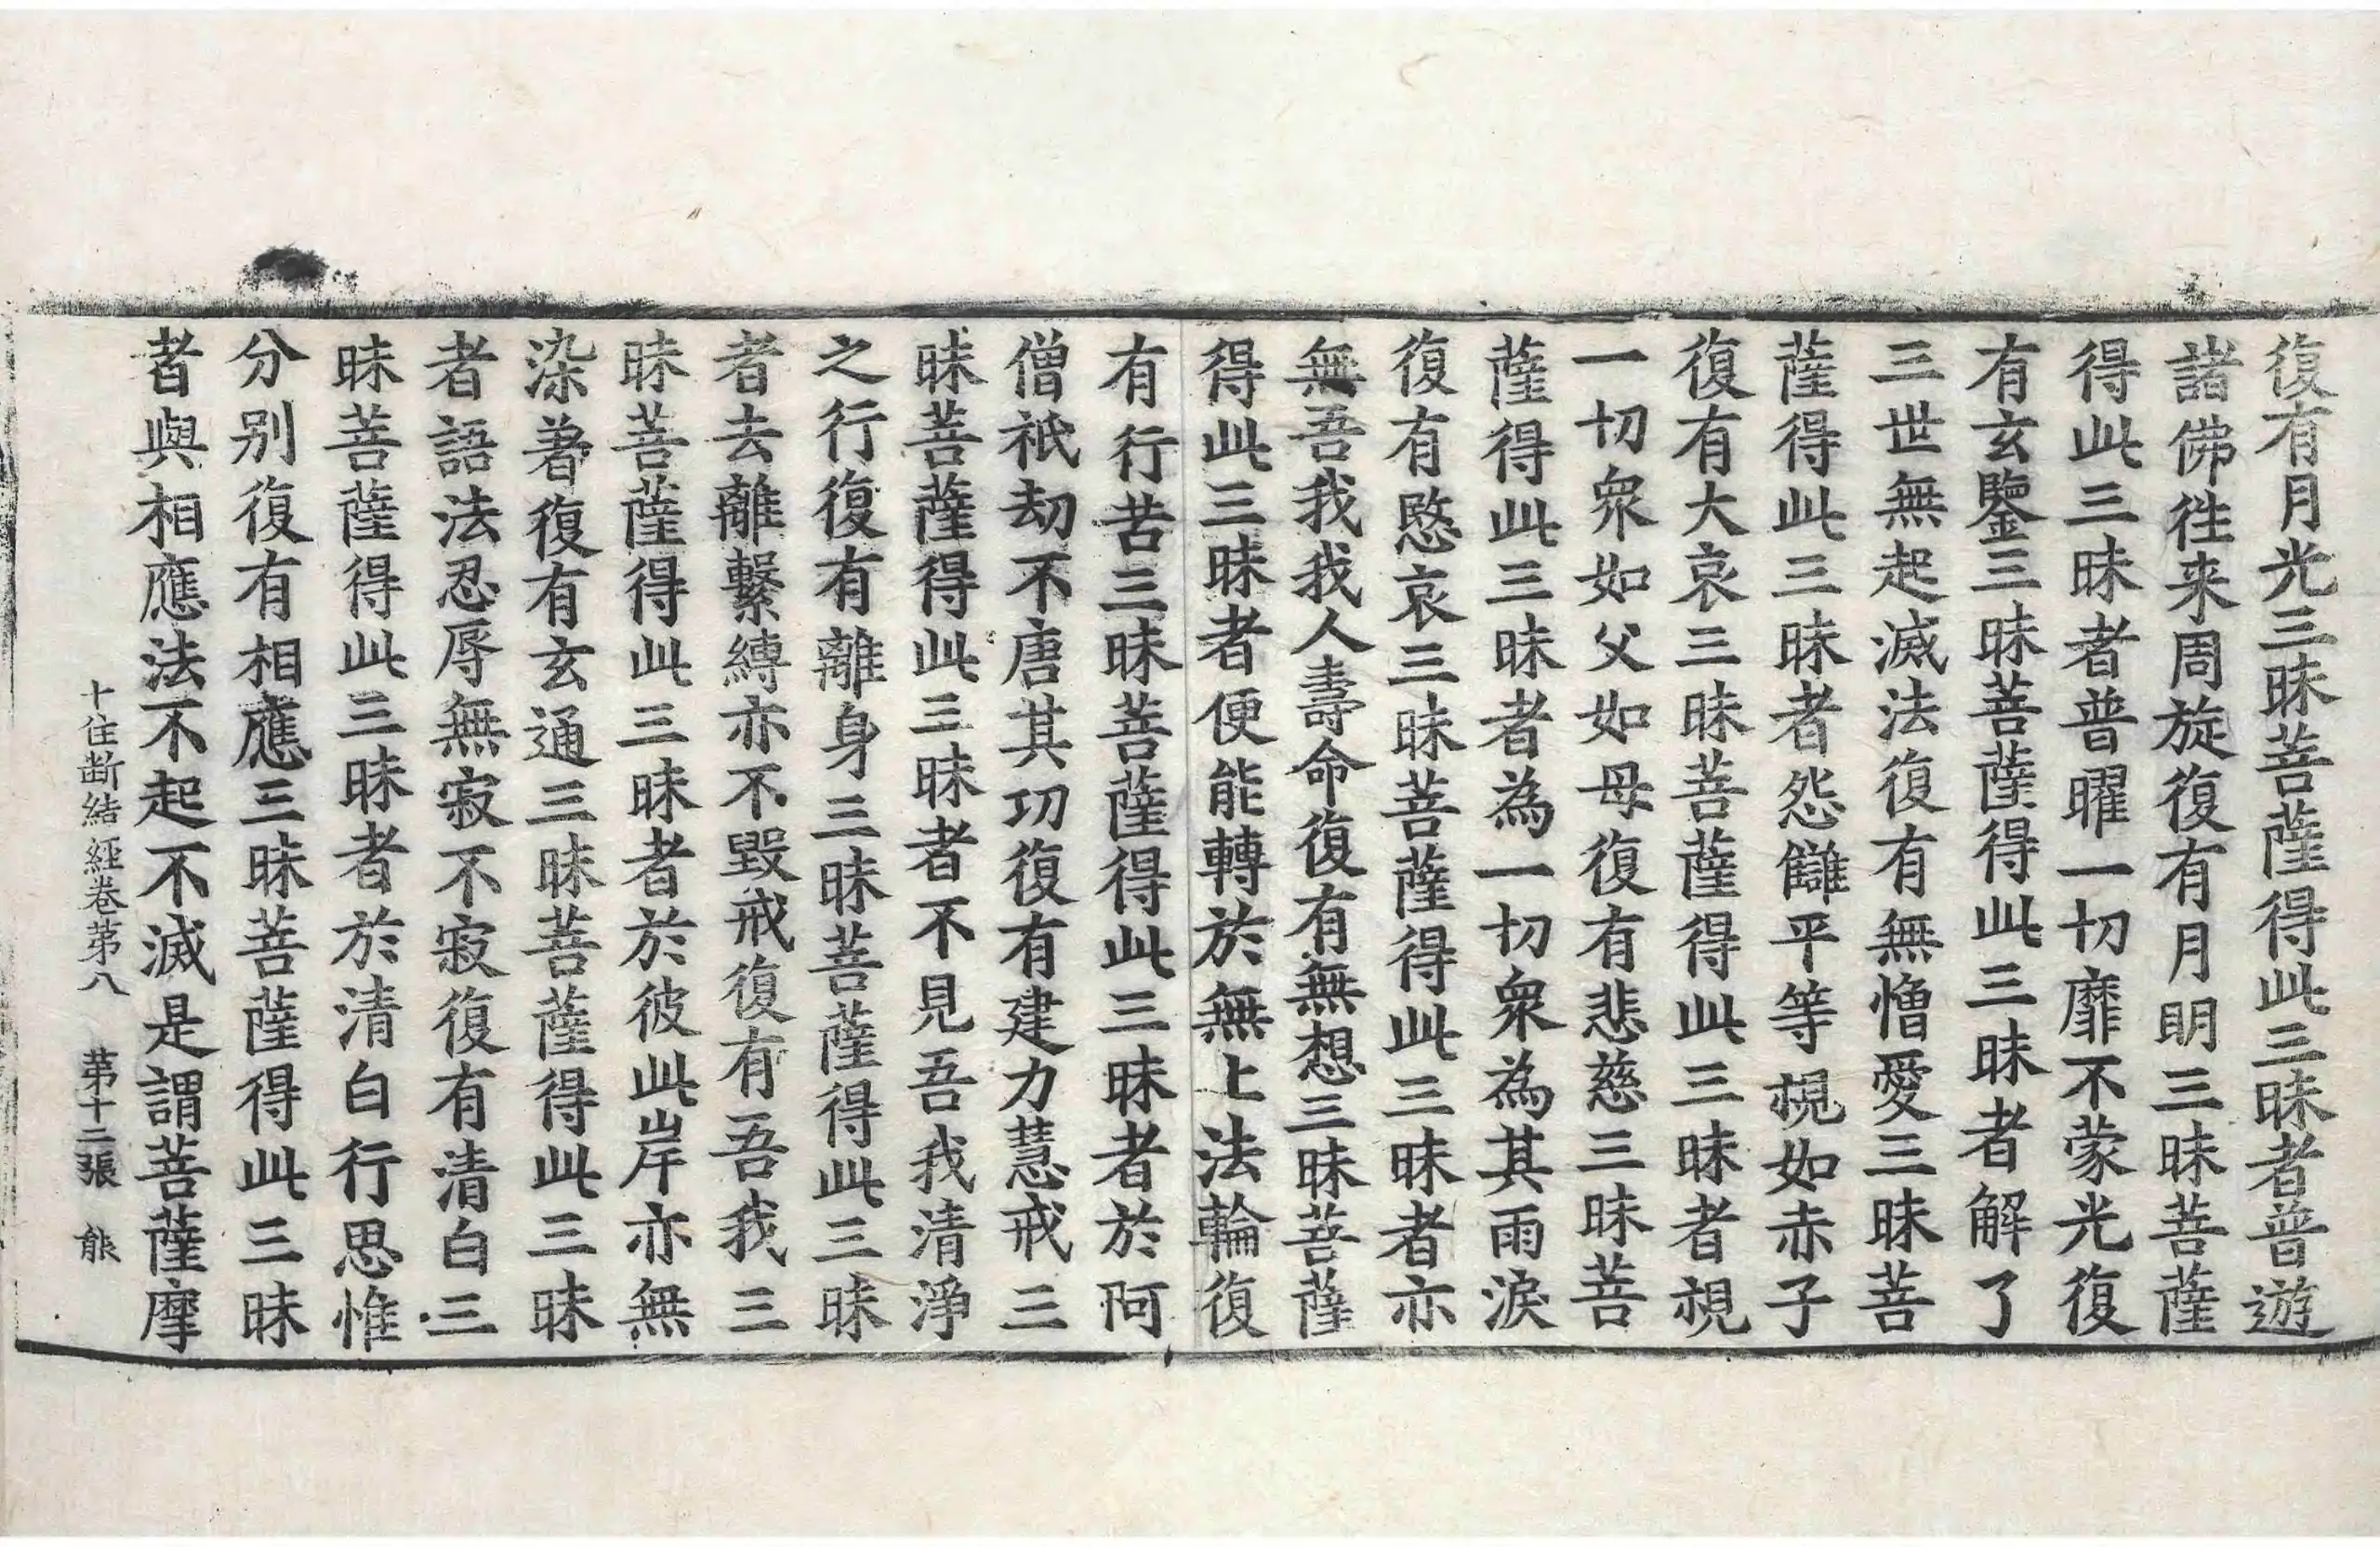 復有月光三昧菩薩得此三昧者普遊
諸佛徃来周旋復有月明三昧菩薩
得此三昧者普曜一切靡不蒙光復
有玄鑒三昧菩薩得此三昧者解了
三世無起滅法復有無憎愛三昧菩
薩得此三昧者怨讎平等視如赤子
復有大哀三昧菩薩得此三昧者視
一切衆如父如母復有悲慈三昧菩
薩得此三昧者為一切衆為其雨淚
復有愍哀三昧菩薩得此三昧者亦
無吾我我人壽命復有無想三昧菩薩
得此三昧者便能轉於無上法輪復
有行苦三昧菩薩得此三昧者於阿
僧祇劫不唐其功復有建力慧戒三
昧菩薩得此三昧者不見吾我清淨
之行復有離身三昧菩薩得此三昧
者去離繫縛亦不毀戒復有吾我三
昧菩薩得此三昧者於彼此岸亦無
染著復有玄通三昧菩薩得此三昧
者語法忍辱無寂不寂復有清白三
昧菩薩得此三昧者於清白行思惟
分别復有相應三昧菩薩得此三昧
者與相應法不起不滅是謂菩薩摩
十住断結經卷第八 第十二張 㲋